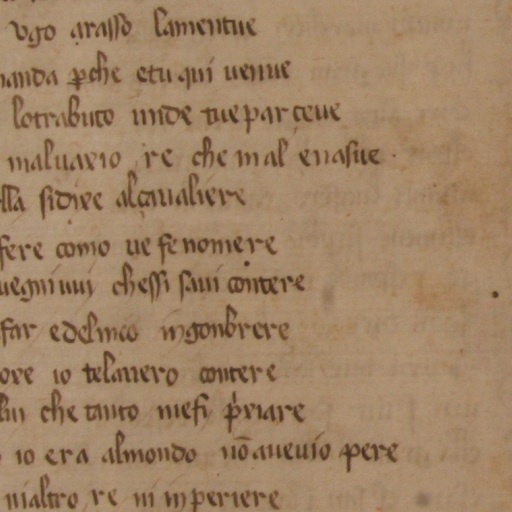 ugo arasso lamentue
manda p̱che etu qui uenue
lotrabuto unde tue parceue
maluaxio re che mal enasue ·
lla si dire alcaualiere
fere como ue fenomere
uegniuu chessi saui contere
far edelinco ingonbrere
ore io telauero contere
che tanto mefi p̱riare
io era almondo nō aueuio pere
nialtro re ni inperiere